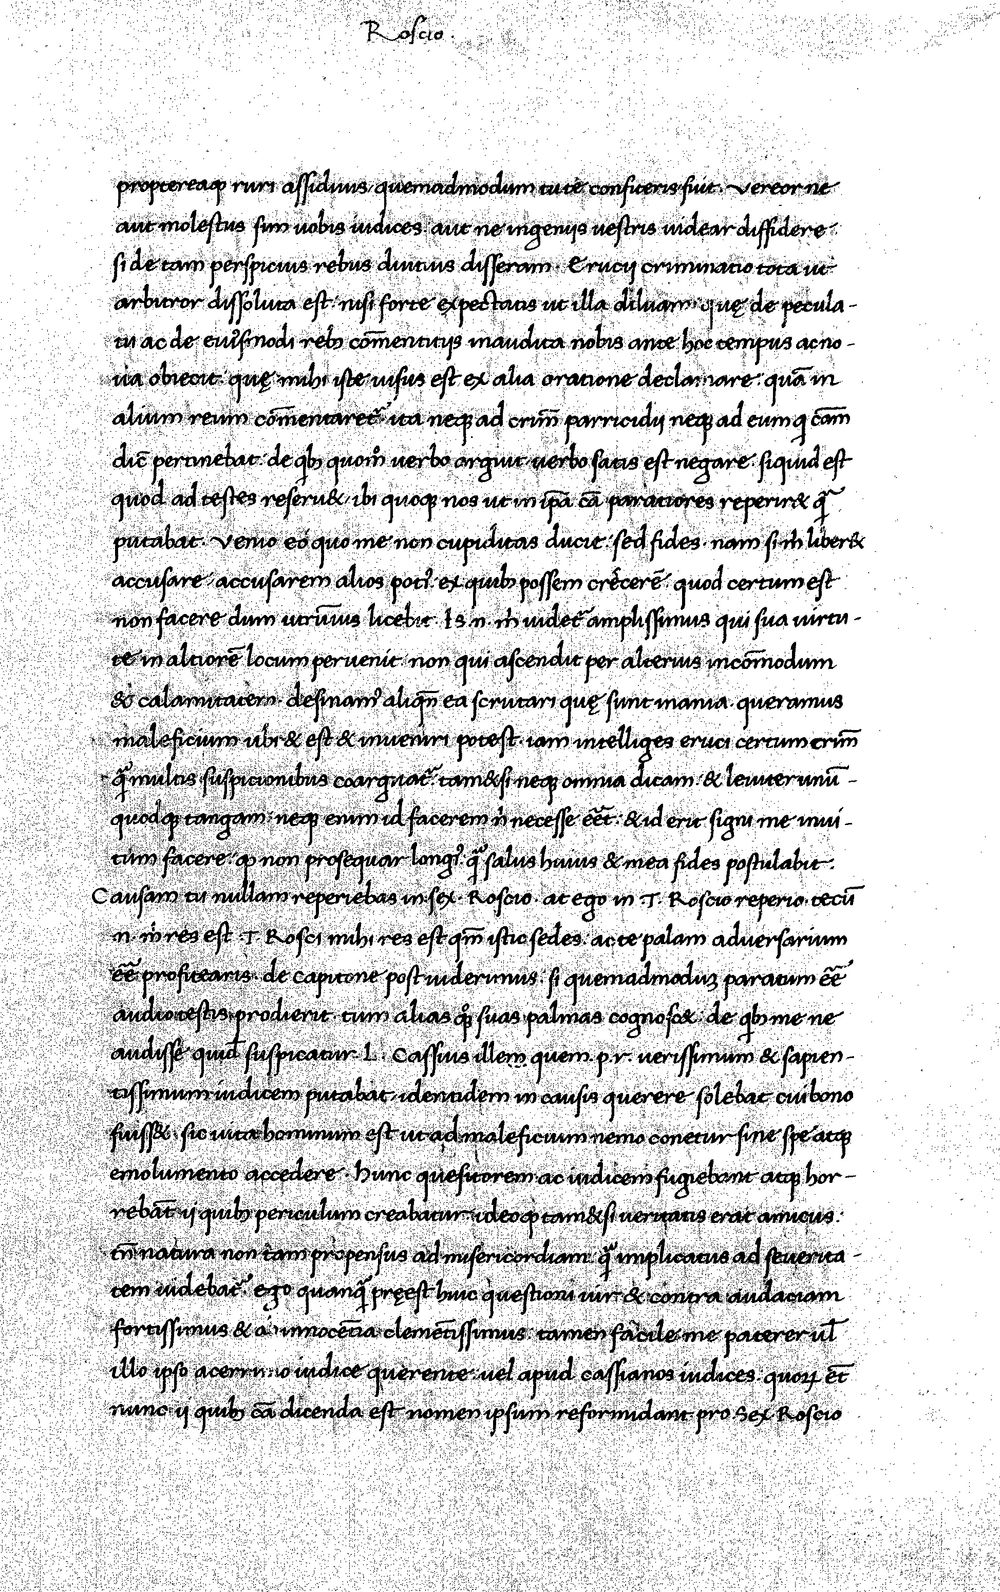 Roscio.
proptereaq; ruri assiduus quemadmodum tute confiteris fuit. Vereor ne
aut molestus sim uobis iudices. aut ne ingenijs uestris uidear diffidere
si de tam perspicuis rebus diutius disseram. Erucij criminatio tota ut
arbitror dissoluta est. nisi forte expectatis ut illa diluam. quę de pecula-
tu ac de eiusmodi reb; com̄entitijs inaudita nobis ante hoc tempus ac no-
ua obiecit. quę mihi iste uisus est ex alia oratione declamare. quā in
alium reum com̄entaret᷑ ita neq; ad crim̄ parricidij neq; ad eum q cām
dic̄ pertinebat. de qb; quom̊ uerbo arguit uerbo satis est negare. siquid est
quod ad testes reseru& ibi quoq; nos ut in ip̄a cā paratiores reperi& q̃
putabat. Venio eó quo me non cupiditas ducit. sed fides. nam si m̊ liber&
accusare. accusarem alios poti᾿ ex quib; possem crescerē. quod certum est
non facere dum utrūuis licebit. Is .n. m̊ uidet᷑ amplissimus qui sua uirtu-
te in altiorē locum peruenit. non qui ascendit per alterius incōmodum
& calamitatem. desinam᾿ aliqn̄ ea scrutari quę sunt inania. queramus
maleficium ubi & est & inueniri potest. iam intelliges eruci certum crim̄
q̃ multis suspicionibus coarguat᷑. tam&si neq; omnia dicam. & leuiter unū-
quodq; tangam. neq; enim id facerem n̊ necesse eēt. & id erit signi me inui-
tum facere. q non prosequar longi᾿ q̃ salus huius & mea fides postulabit.
Causam tu nullam reperiebas in sex. Roscio. at ego in .T. Roscio reperio. tecū
.n. m̊ res est .T. Rosci mihi res est qm̄ istic sedes. ac te palam aduersarium
eē profitearis. de capitone post uiderimus. si quemadmoduȝ paratum eē
audio testis prodierit. tum alias q; suas palmas cognosc&. de qb; me ne
audisse quid suspicatur. L. Cassius illem quem .p.r. uerissimum & sapien-
tissimum iudicem putabat. identidem in causis querere solebat cui bono
fuiss&. sic uita hominum est ut ad maleficium nemo conetur sine spe atq;
emolumento accedere. Hunc quesitorem ac iudicem fugiebant atq; hor-
rebāt ij quib; periculum creabatur. ideo q tam&si ueritatis erat amicus.
tn̄ natura non tam propensus ad misericordiam. q̃ implicatus ad seuerita-
tem uidebat᷑. ego quanq̃ pręest huic questioni uir & contra audaciam
fortissimus & innocētia clemētissimus. tamen facile me paterer ul̄
illo ipso acerrimo iudice querente. uel apud cassianos iudices. quoꝝ ēt
nunc ij quib; cā dicenda est nomen ipsum reformidant pro Sex Roscio